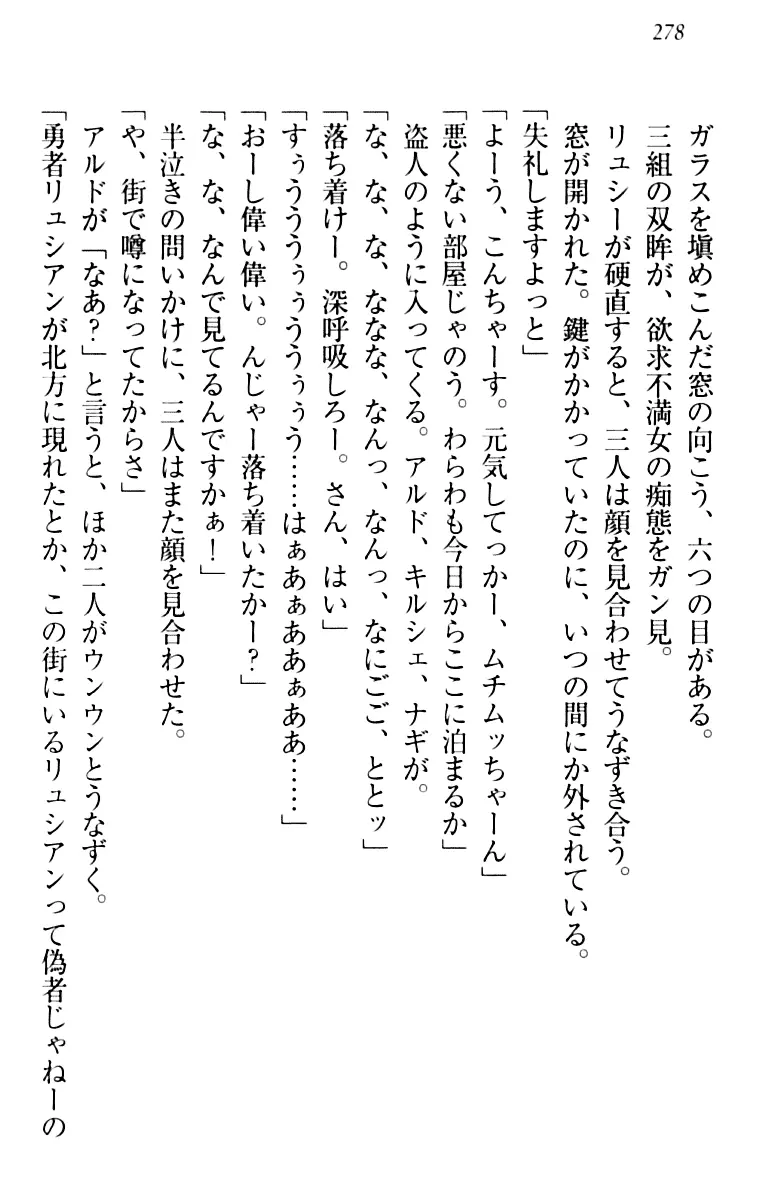 278
ガラスを塡めこんだ窓の向こう、六つの目がある。
三組の双眸が、欲求不満女の痴態をガン見。
リュシーが硬直すると、三人は顔を見合わせてうなずき合う。
窓が開かれた。鍵がかかっていたのに、いつの間にか外されている。
「失礼しますよっと」
「よーう、こんちゃーす。元気してっかー、ムチムッちゃーん」
「悪くない部屋じゃのう。わらわも今日からここに泊まるか」
盗人のように入ってくる。アルド、キルシェ、ナギが。
「な、な、な、ななな、なんっ、なんっ、なにごご、ととッ」
「落ち着けー。深呼吸しろー。さん、はい」
「すぅうううぅぅううぅぅう……はぁあぁああぁああ……」
「おーし偉い偉い。んじゃー落ち着いたかー？」
「な、な、なんで見てるんですかぁ！」
半泣きの問いかけに、三人はまた顔を見合わせた。
「や、街で噂になってたからさ」
アルドが「なあ？」と言うと、ほか二人がウンウンとうなずく。
「勇者リュシアンが北方に現れたとか、この街にいるリュシアンって偽者じゃねーの